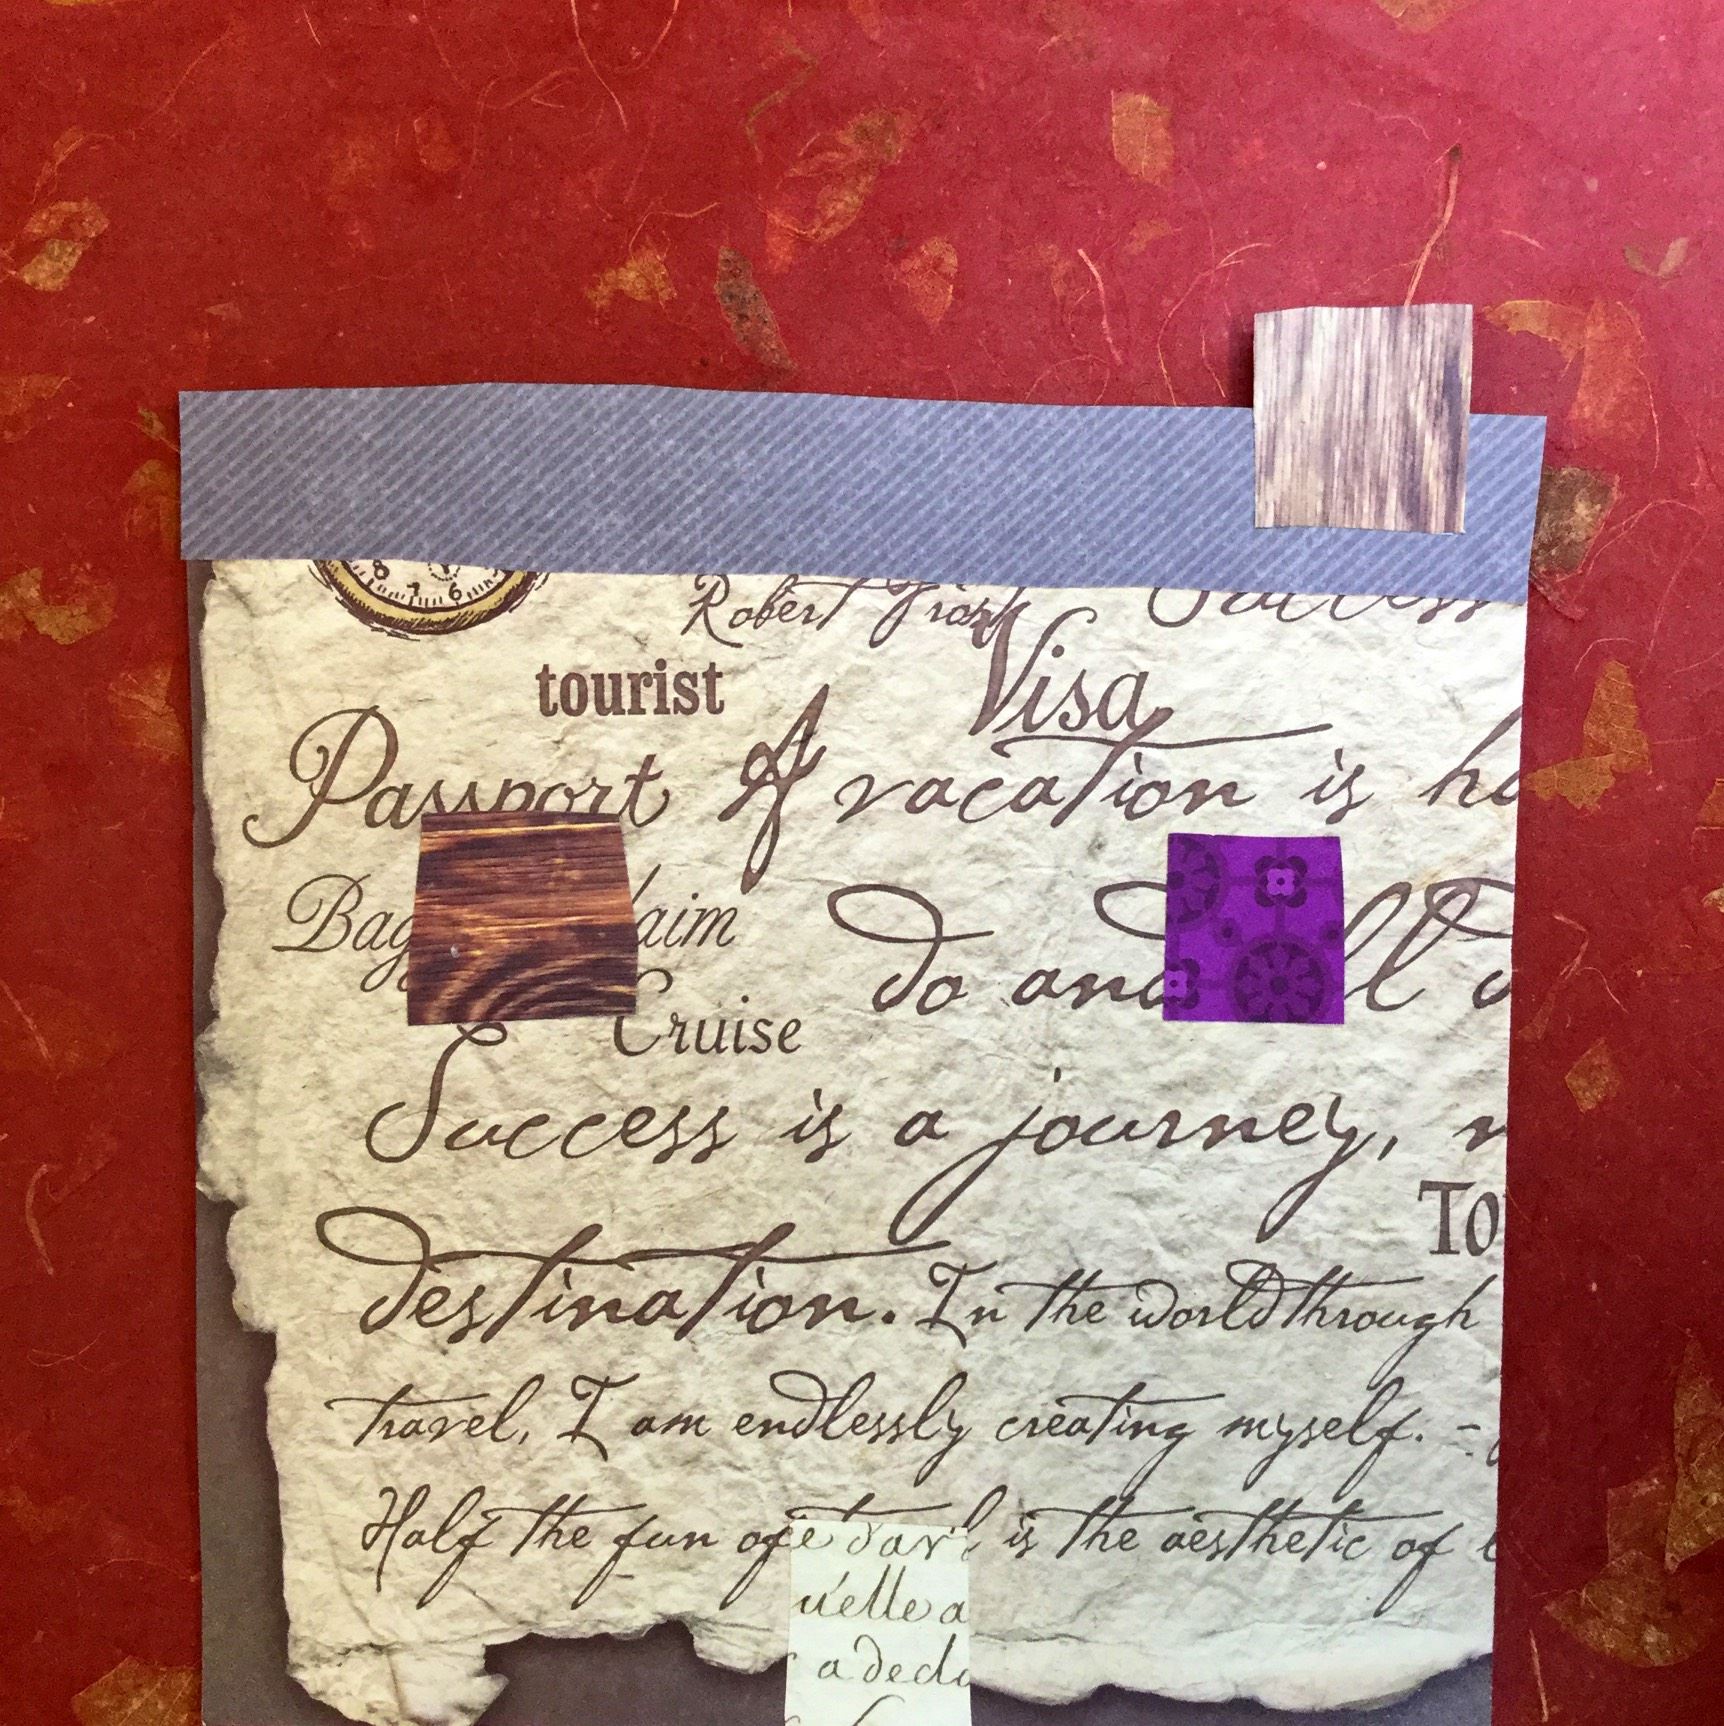 8 7 6
Robert Frost Success
tourist
Visa
Passport A vacation is
Do and
Cruise
Success is a journey,
destination.
To
In the world through
travel, I am endlessly creating myself. -
Half the fun of is the aesthetic of
uelle a
a deda